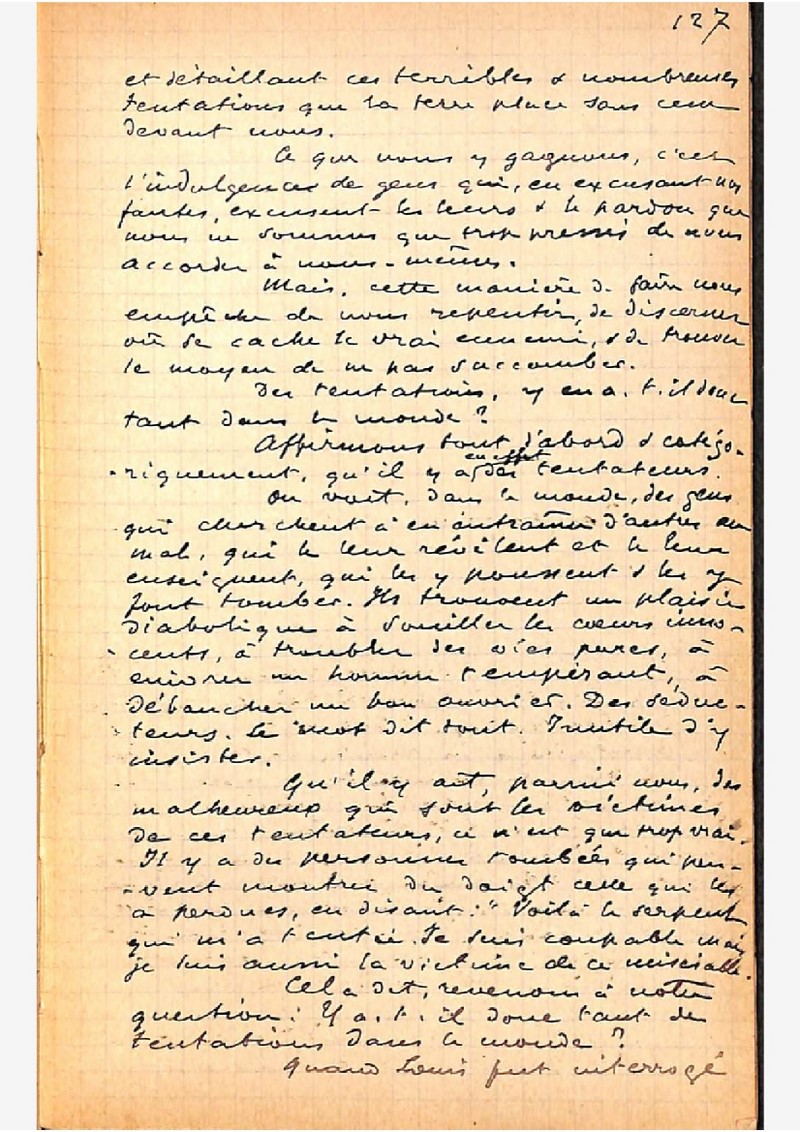 127
et détaillant ces terribles & nombreuses
tentations que la terre place sans cesse
devant nous.
Ce que nous y gagnons, c'est
l'indulgence de gens qui, en excusant nos
fautes, excusent les leurs & le pardon que
nous ne sommes que trop pressés de nous
accorder à nous-mêmes.
Mais, cette manière de faire nous
empêche de nous repentir, de discerner
où se cache le vrai ennemi, & de trouver
le moyen de ne pas succomber.
Des tentations, y en a-t-il donc
tant dans le monde ?
Affirmons tout d'abord & catégo-
riquement, qu'il y a en effet des tentateurs.
On voit, dans le monde, des gens
qui cherchent à en entraîner d'autres au
mal, qui le leur révèlent et le leur
enseignent, qui les y poussent & les y
font tomber. Ils trouvent un plaisir
diabolique à souiller les cœurs inno-
cents, à troubler des vies pures, à
enivrer un homme tempérant, à
débaucher un bon ouvrier. Des séduc-
teurs. Le mot dit tout. Inutile d'y
insister.
Qu'il y ait, parmi nous, des
malheureux qui sont les victimes
de ces tentateurs, ce n'est que trop vrai.
Il y a des personnes tombées qui peu-
vent montrer du doigt celle qui les
a perdues, en disant : "Voilà le serpent
qui m'a tentée. Je suis coupable mais
je suis aussi la victime de ce misérable.
Cela dit, revenons à notre
question : Y a-t-il donc tant de
tentations dans le monde ?
Quand Louis fut interrogé